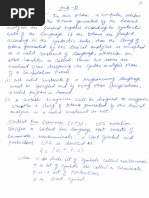 Unit-II
In this phase a compiler,
tokens generated by the lexical
analyser are grouped together according to syntactic
rule of the language. If the tokens are grouped
according to the syntactic rules then the string of
tokens generated by the lexical analyser is accepted
as a valid construct of language, otherwise an
error handler is called. Hence two issues are
involved when designing the syntax analysis phase
of a compilation process
All valid constructs of a programming language
must be specified and by using these specifications,
a valid program is formed.
(2) A suitable recogniser will be designed to recognise
whether a string of tokens generated by the lexical analyser
is a valid construct or not.
Context Free Grammar (CFG) CFG notation
specifies a context free language that consists of
terminals, nonterminals, a start symbol and
productions. CFG is defined as
where
finite set of symbols called nonterminals
T is a set of symbols called terminals
P is a set of productions
S is start symbol.